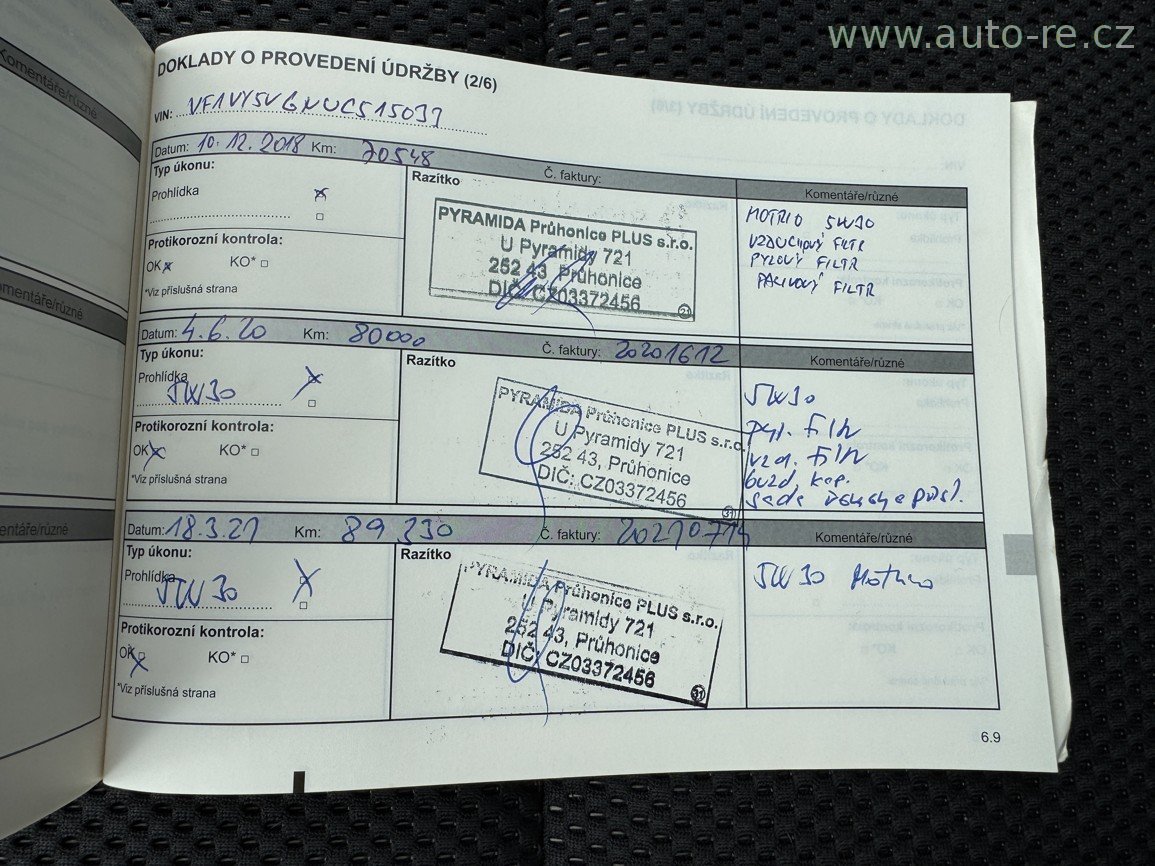 www.auto-re.cz
DOKLADY O PROVEDENÍ ÚDRŽBY (2/6)
VIN:
Komentáře/různé
Datum: 10.12.2018 Km: 70548
Č. faktury:
Typ úkonu:
Prohlídka
Protikorozní kontrola:
OK x KO*
*Viz příslušná strana
Razítko
PYRAMIDA Průhonice PLUS s.r.o.
U Pyramidy 721
252 43, Průhonice
DIČ: CZ03372456
21
Komentáře/různé
MOTRIO 5W30
VZDUCHOVÝ FILTR
PYLOVÝ FILTR
PALIVOVÝ FILTR
Komentáře/různé
Datum: 4.6.20 Km: 80000
Č. faktury: 20201612
Typ úkonu:
Prohlídka
5W30
Protikorozní kontrola:
OK x KO*
*Viz příslušná strana
Razítko
PYRAMIDA Průhonice PLUS s.r.o.
U Pyramidy 721
252 43, Průhonice
DIČ: CZ03372456
31
Komentáře/různé
5W30
pyl. filtr
vzd. filtr
sada
Komentáře/různé
Datum: 18.3.21 Km: 89 330
Č. faktury:
Typ úkonu:
Prohlídka
5W30
Protikorozní kontrola:
OK x KO*
*Viz příslušná strana
Razítko
PYRAMIDA Průhonice PLUS s.r.o.
U Pyramidy 721
252 43, Průhonice
DIČ: CZ03372456
31
Komentáře/různé
5W30 Motrio
6.9